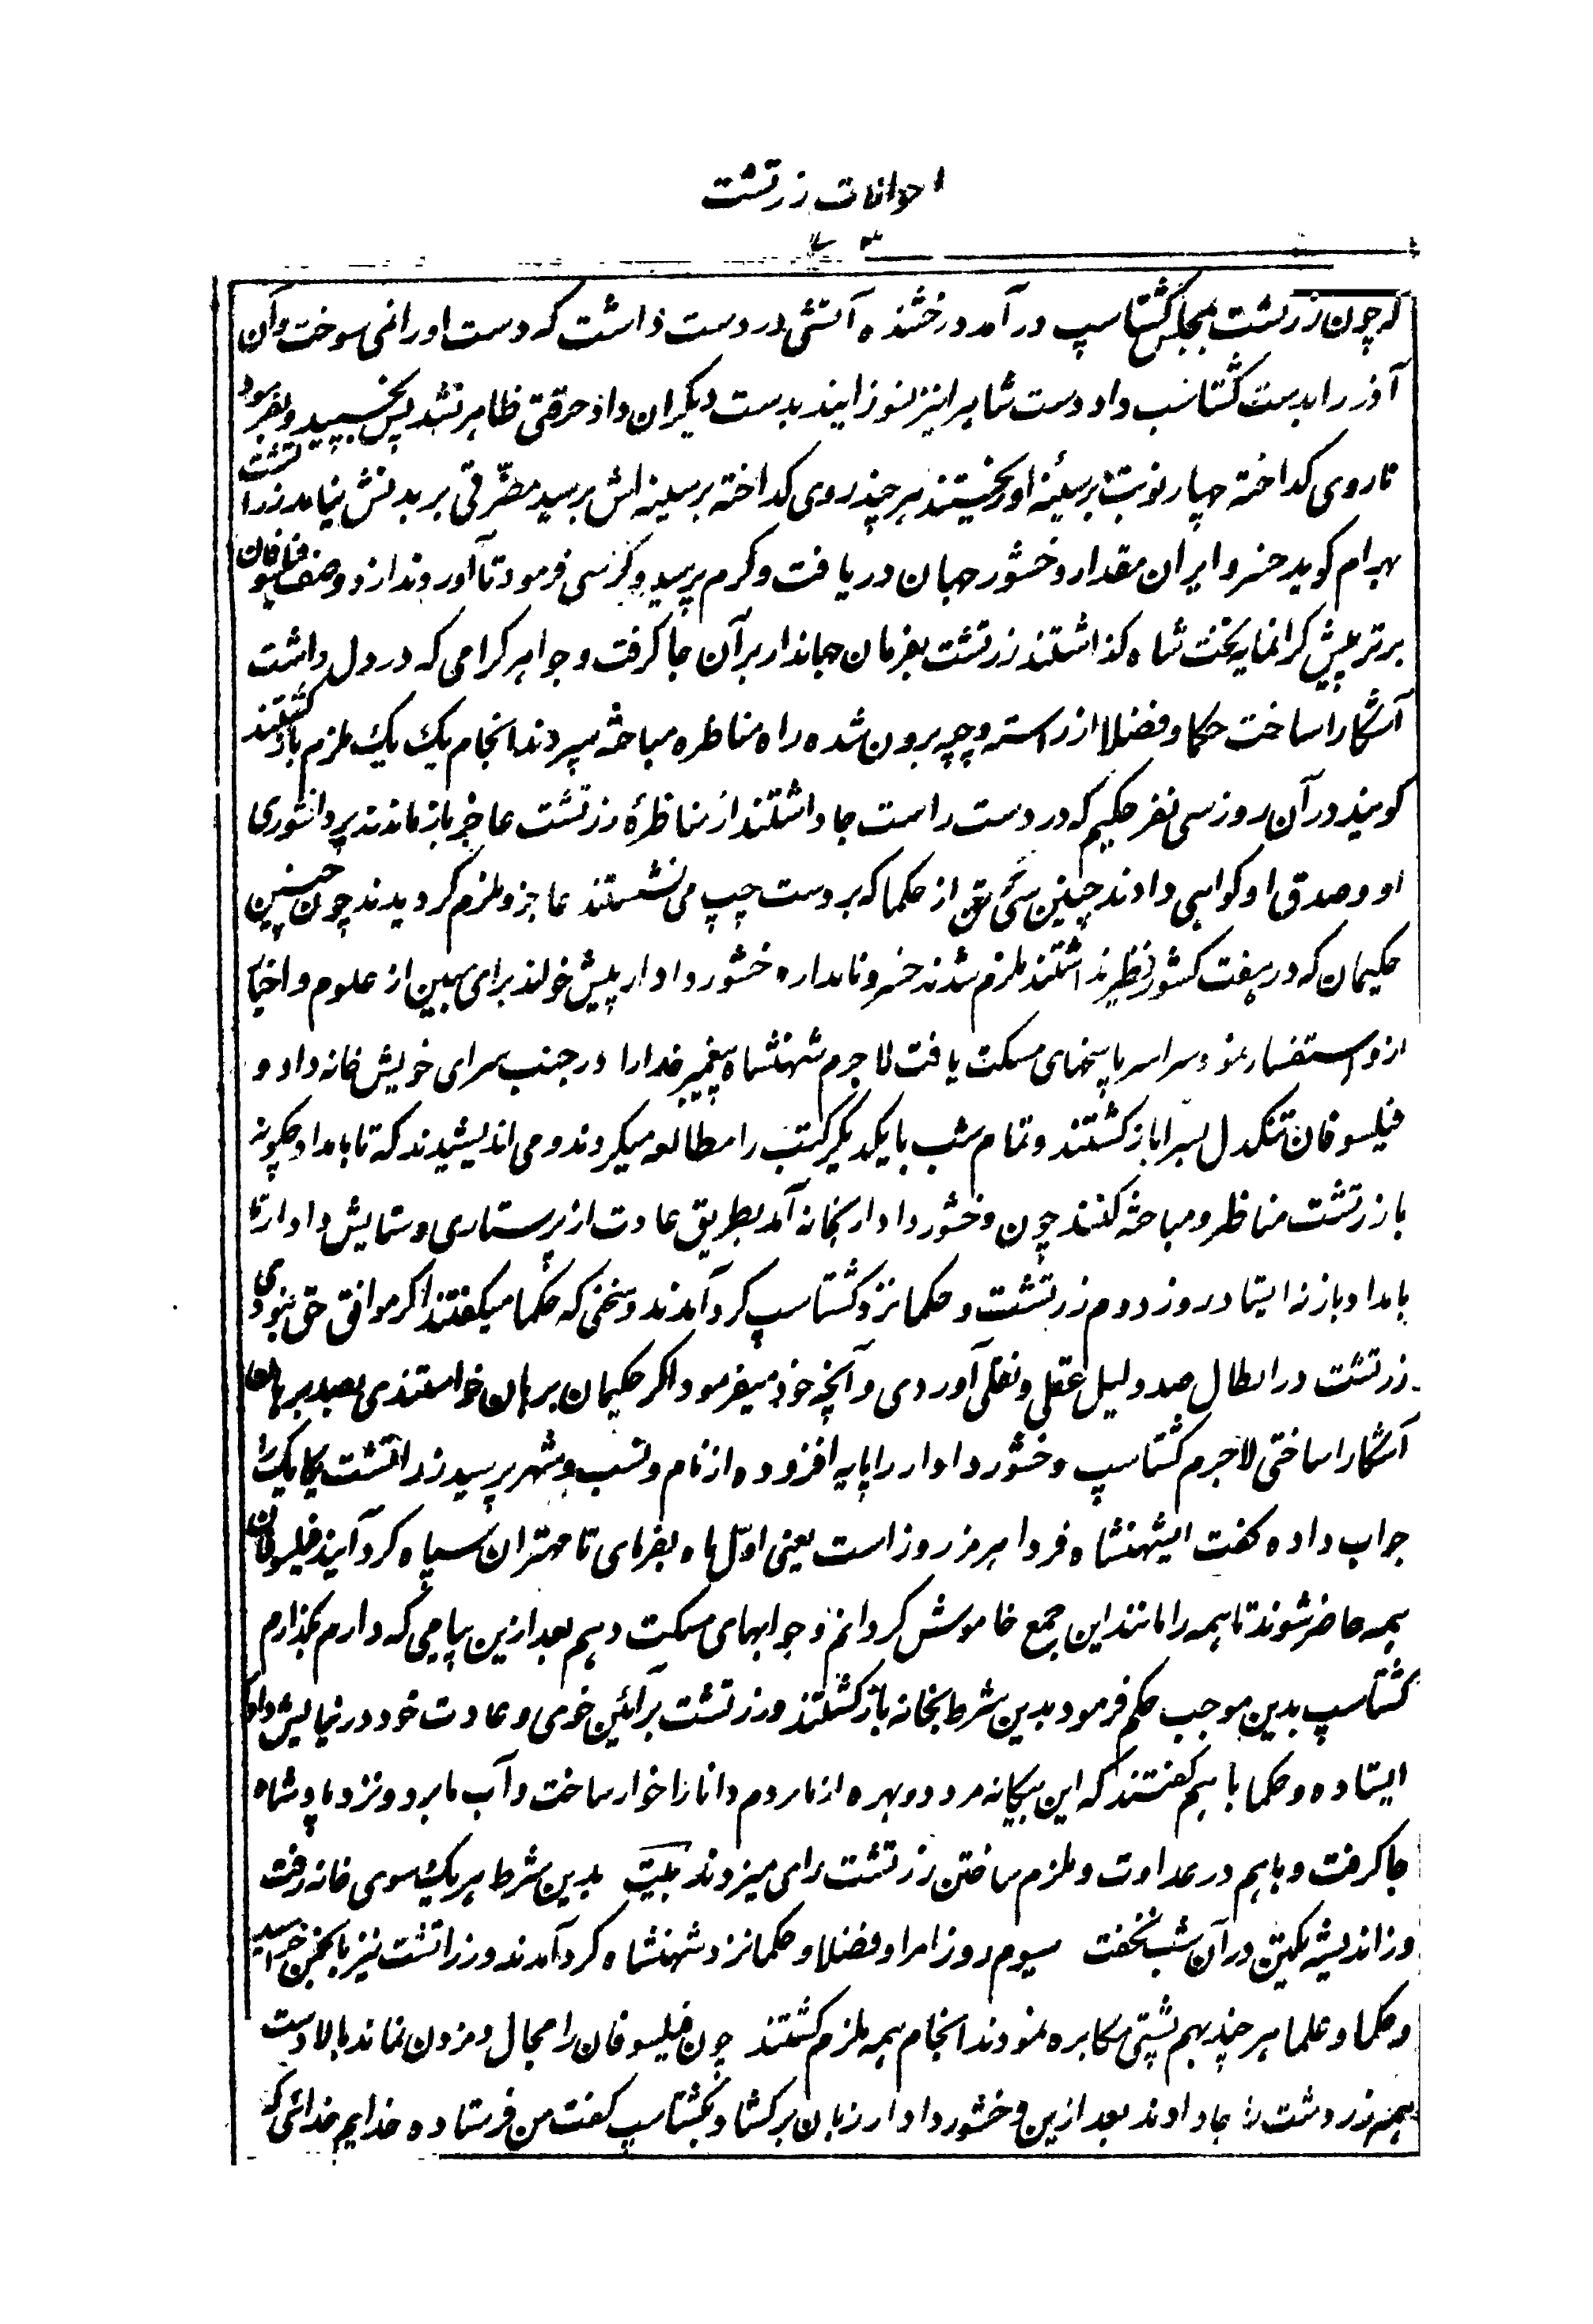 احوالات زرتشت
که چون زرتشت بمجلس گشتاسپ درآمد درخشنده آتشی در دست داشت که دست او را نمی سوخت و آن
آذر را بدست گشتاسب داد دست شاه را نیز نسوزانید بدست دیگران داد حرقتی ظاهر نشد پس بخسپید و بفرمود
تا روی گداخته چهار نوبت بر سینهٔ او ریختند هر چند روی گداخته بر سینه اش برسید مضرتی بر بدنش نیامد زراتشت
بهرام گوید خسرو ایران مقدار وخشور جهان دریافت و گرم پرسید و کرسی فرمود تا آوردند از دو صف فیلسوفان
برتر پیش گرانمایه تخت شاه گذاشتند زرتشت بفرمان جهاندار بر آن جا گرفت و جواهر گرامی که در دل داشت
آشکارا ساخت حکما و فضلا از راسته و چپه برون شده راه مناظره مباحثه سپردند انجام یک یک ملزم بازگشتند
گویند در آن روز سی نفر حکیم که در دست راست جا داشتند از مناظرهٔ زرتشت عاجز بازماندند بر دانشوری
او و صدق او گواهی دادند چنین سی تن از حکما که بر دست چپ می نشستند عاجز و ملزم گردیدند چون چنین
حکیمان که در هفت کشور نظیر نداشتند ملزم شدند خسرو نامدار وخشور دادار پیش خواند برای بهین از علوم و اخبار
ازو استفسار نمود سراسر پاسخهای مسکت یافت لاجرم شهنشاه پیغمبر خدا را در جنب سرای خویش خانه داد و
فیلسوفان تنگدل بسرا بازگشتند و تمام شب با یکدیگر کتب را مطالعه میکردند و می اندیشیدند که تا بامداد چگونه
با زرتشت مناظره و مباحثه کنند چون وخشور دادار بخانه آمد بطریق عادت از پرستاری و ستایش دادار تا
بامداد باز نه ایستاد روز دوم زرتشت و حکما نزد گشتاسپ گرد آمدند و سخنی که حکما میگفتند اگر موافق حق نبودی
زرتشت در ابطال صد دلیل عقلی و نقلی آوردی و آنچه خود میفرمود اگر حکیمان برهان خواستندی بصد برهان
آشکارا ساختی لاجرم گشتاسپ وخشور دادار را پایه افزوده از نام و نسب و شهر پرسید زراتشت یکایک را
جواب داده گفت ای شهنشاه فردا هرمز روز است یعنی اول ماه بفرمای تا مهتران سپاه گرد آیند فیلسوفان
همه حاضر شوند تا همه را مانند این جمع خاموش گردانم و جوابهای مسکت دهم بعد ازین پیامی که دارم بگذارم
گشتاسپ بدین موجب حکم فرمود بدین شرط بخانه بازگشتند و زرتشت بر آئین خوی و عادت خود در نیایش دادار
ایستاده و حکما با هم گفتند که این بیگانه مرد دو بهره از ما مردم دانا را خوار ساخت و آب ما برد و نزد پادشاه
جا گرفت و باهم در عداوت و ملزم ساختن زرتشت رای میزدند بیت بدین شرط هر یک سوی خانه رفت
وز اندیشه یک تن در آن شب نخفت سیوم روز امرا و فضلا و حکما نزد شهنشاه گرد آمدند و زراتشت نیز بانجمن خرامید
و حکما و علما هر چند بهم پشتی مکابره نمودند انجام همه ملزم گشتند چون فیلسوفان را مجال دم زدن نماند بالا دست
همه زردشت را جا دادند بعد ازین وخشور دادار زبان برگشاد بگشتاسپ گفت من فرستاده خدایم خدائی که